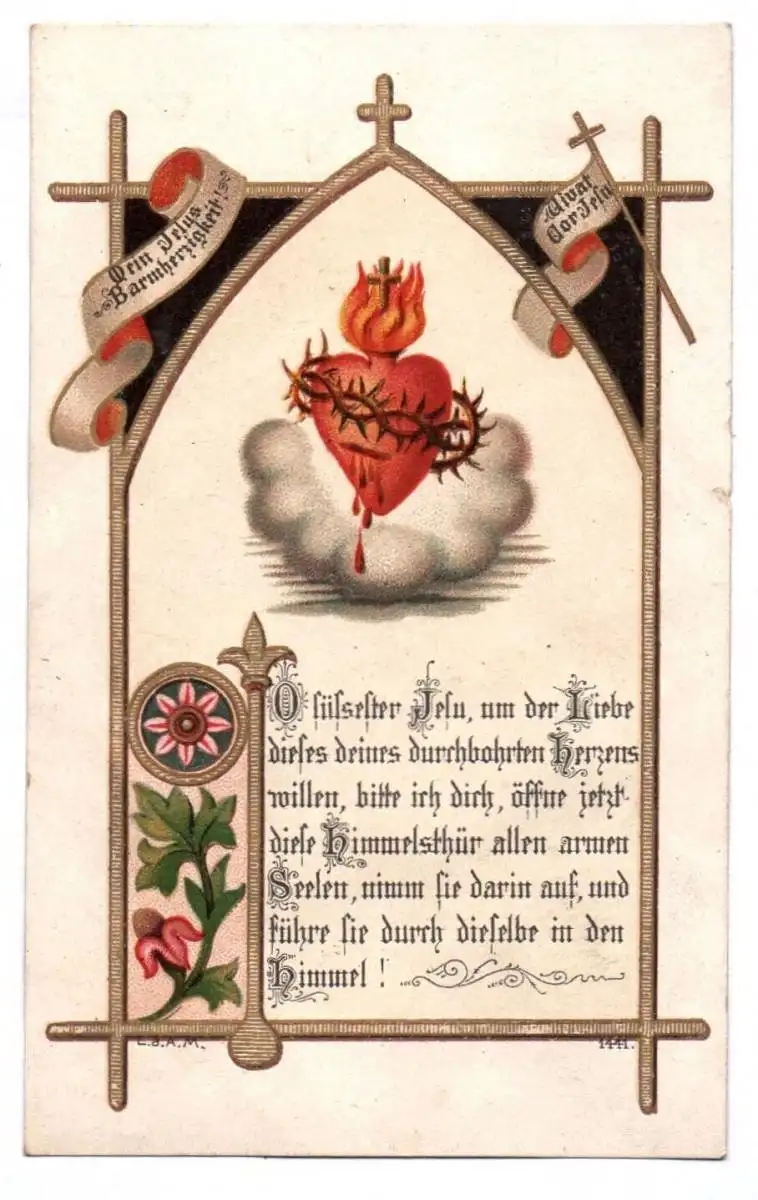 Mein Jesus
Barmherzigkeit!
Vivat
Cor Jesu
O süſsester Jesu, um der Liebe
dieſes deines durchbohrten Herzens
willen, bitte ich dich, öffne jetzt
dieſe Himmelsthür allen armen
Seelen, nimm ſie darin auf, und
führe ſie durch dieſelbe in den
Himmel!
L.J.A.M.
1441.